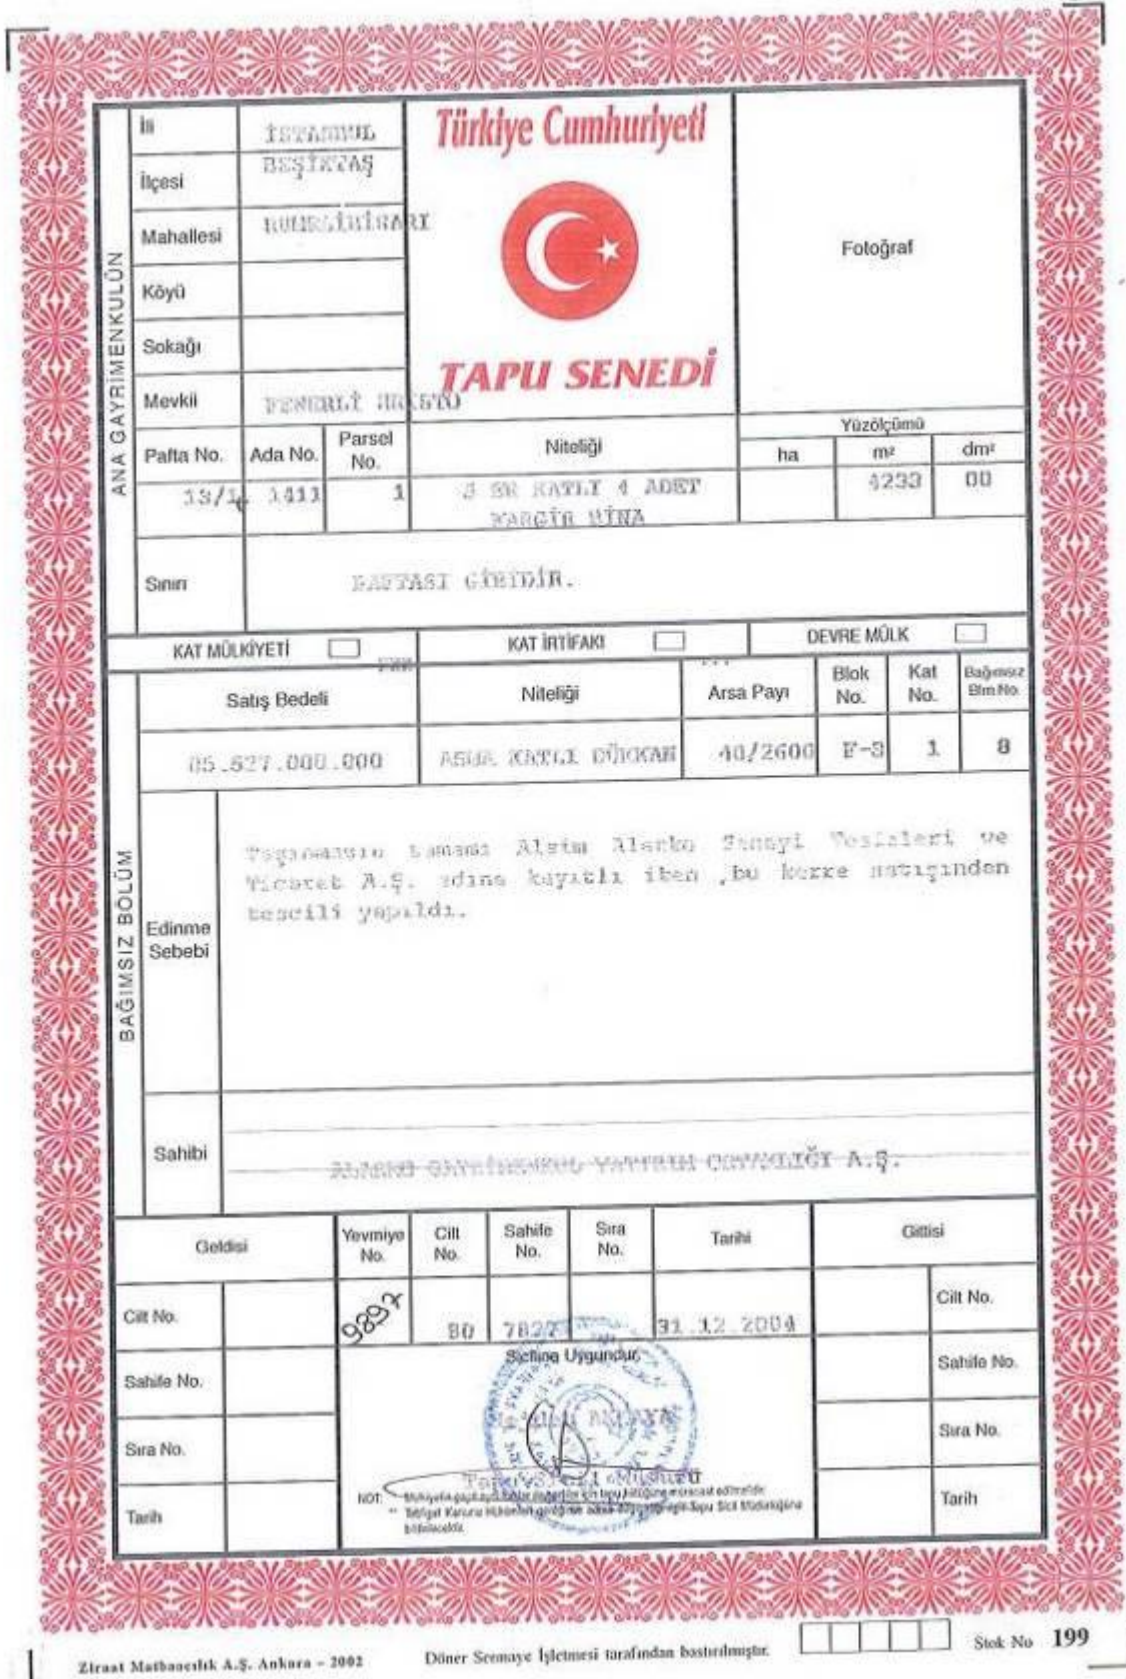 Türkiye Cumhuriyeti
TAPU SENEDİ
Fotoğraf
ANA GAYRİMENKULÜN
İli İSTANBUL
İlçesi BEŞİKTAŞ
Mahallesi RUMELİHİSARI
Köyü
Sokağı
Mevkii FENERLİ HRİSTO
Pafta No. Ada No. Parsel No. Niteliği Yüzölçümü ha m² dm²
13/1 1411 1 ER KATLI 4 ADET 4233 00
KARGİR BİNA
Sınırı PAFTASI GİBİDİR.
KAT MÜLKİYETİ KAT İRTİFAKI DEVRE MÜLK
BAĞIMSIZ BÖLÜM
Satış Bedeli Niteliği Arsa Payı Blok No. Kat No. Bağımsız Blm No.
ASMA KATLI DÜKKAN 40/2600 F-3 1 8
Edinme Sebebi
Taşınmazın tamamı Alsim Alarko Sanayi Tesisleri ve
Ticaret A.Ş. adına kayıtlı iken ,bu kerre satışından
tescili yapıldı.
Sahibi
ALARKO GAYRİMENKUL YATIRIM ORTAKLIĞI A.Ş.
Geldisi Yevmiye No. Cilt No. Sahife No. Sıra No. Tarihi Gittisi
Cilt No. 9897 80 7827 31.12.2004 Cilt No.
Siciline Uygundur.
Sahife No. Sahife No.
Sıra No. Sıra No.
Tarih Tarih
Tapu Sicil Müdürü
NOT:
Ziraat Matbaacılık A.Ş. Ankara – 2002
Döner Sermaye İşletmesi tarafından bastırılmıştır.
Stok No 199